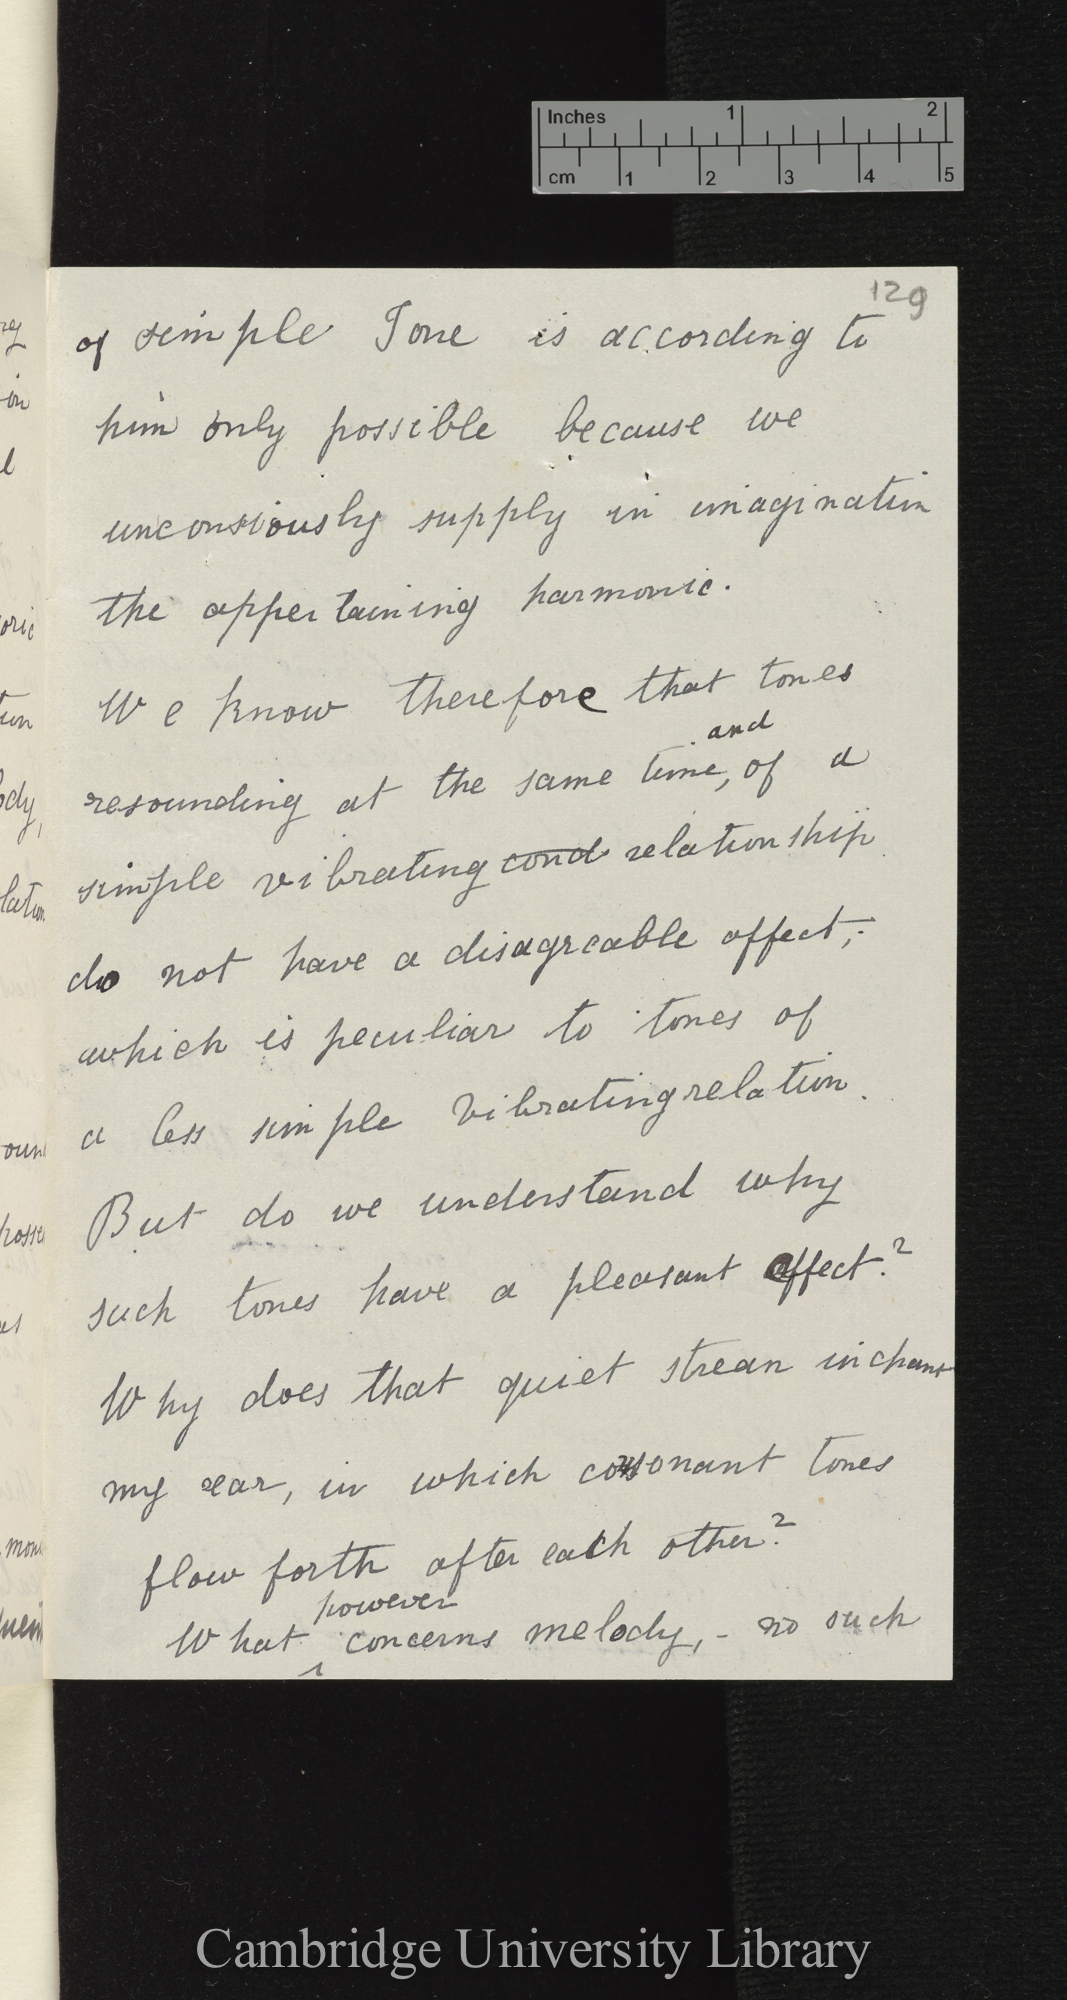 Inches 1 2
cm 1 2 3 4 5
129
of simple Tone is according to
him only possible because we
unconsiously supply in imagination
the appertaining harmonic.
We know therefore that tones
and
resounding at the same time, of a
simple vibrating cond relationship
do not have a disagreable affect,-
which is peculiar to tones of
a less simple vibratingrelation.
But do we understand why
such tones have a pleasant affect.?
Why does that quiet strean inchant
my ear, in which consonant tones
flow forth after each other?
however
What concerns melody,- no such
Cambridge University Library